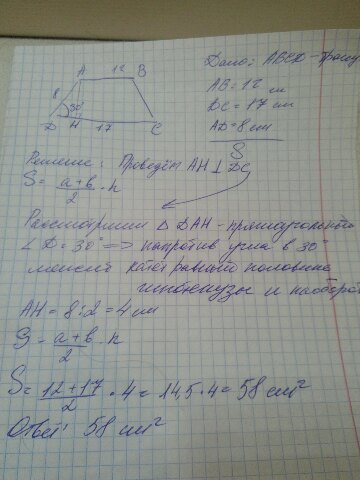 A 12 B
8
30°
D H 17 C
Дано: ABCD - трапец
AB = 12 см
DC = 17 см
AD = 8 см
S
Решение: Проведём AH ⊥ DC
S = a+b/2 · h
Рассмотрим Δ DAH - прямоугольный
∠D = 30° => напротив угла в 30°
лежит катет равный половине
гипотенузы и наоборот
AH = 8 : 2 = 4 см
S = a+b/2 · h
S = 12+17/2 · 4 = 14,5 · 4 = 58 см²
Ответ: 58 см²